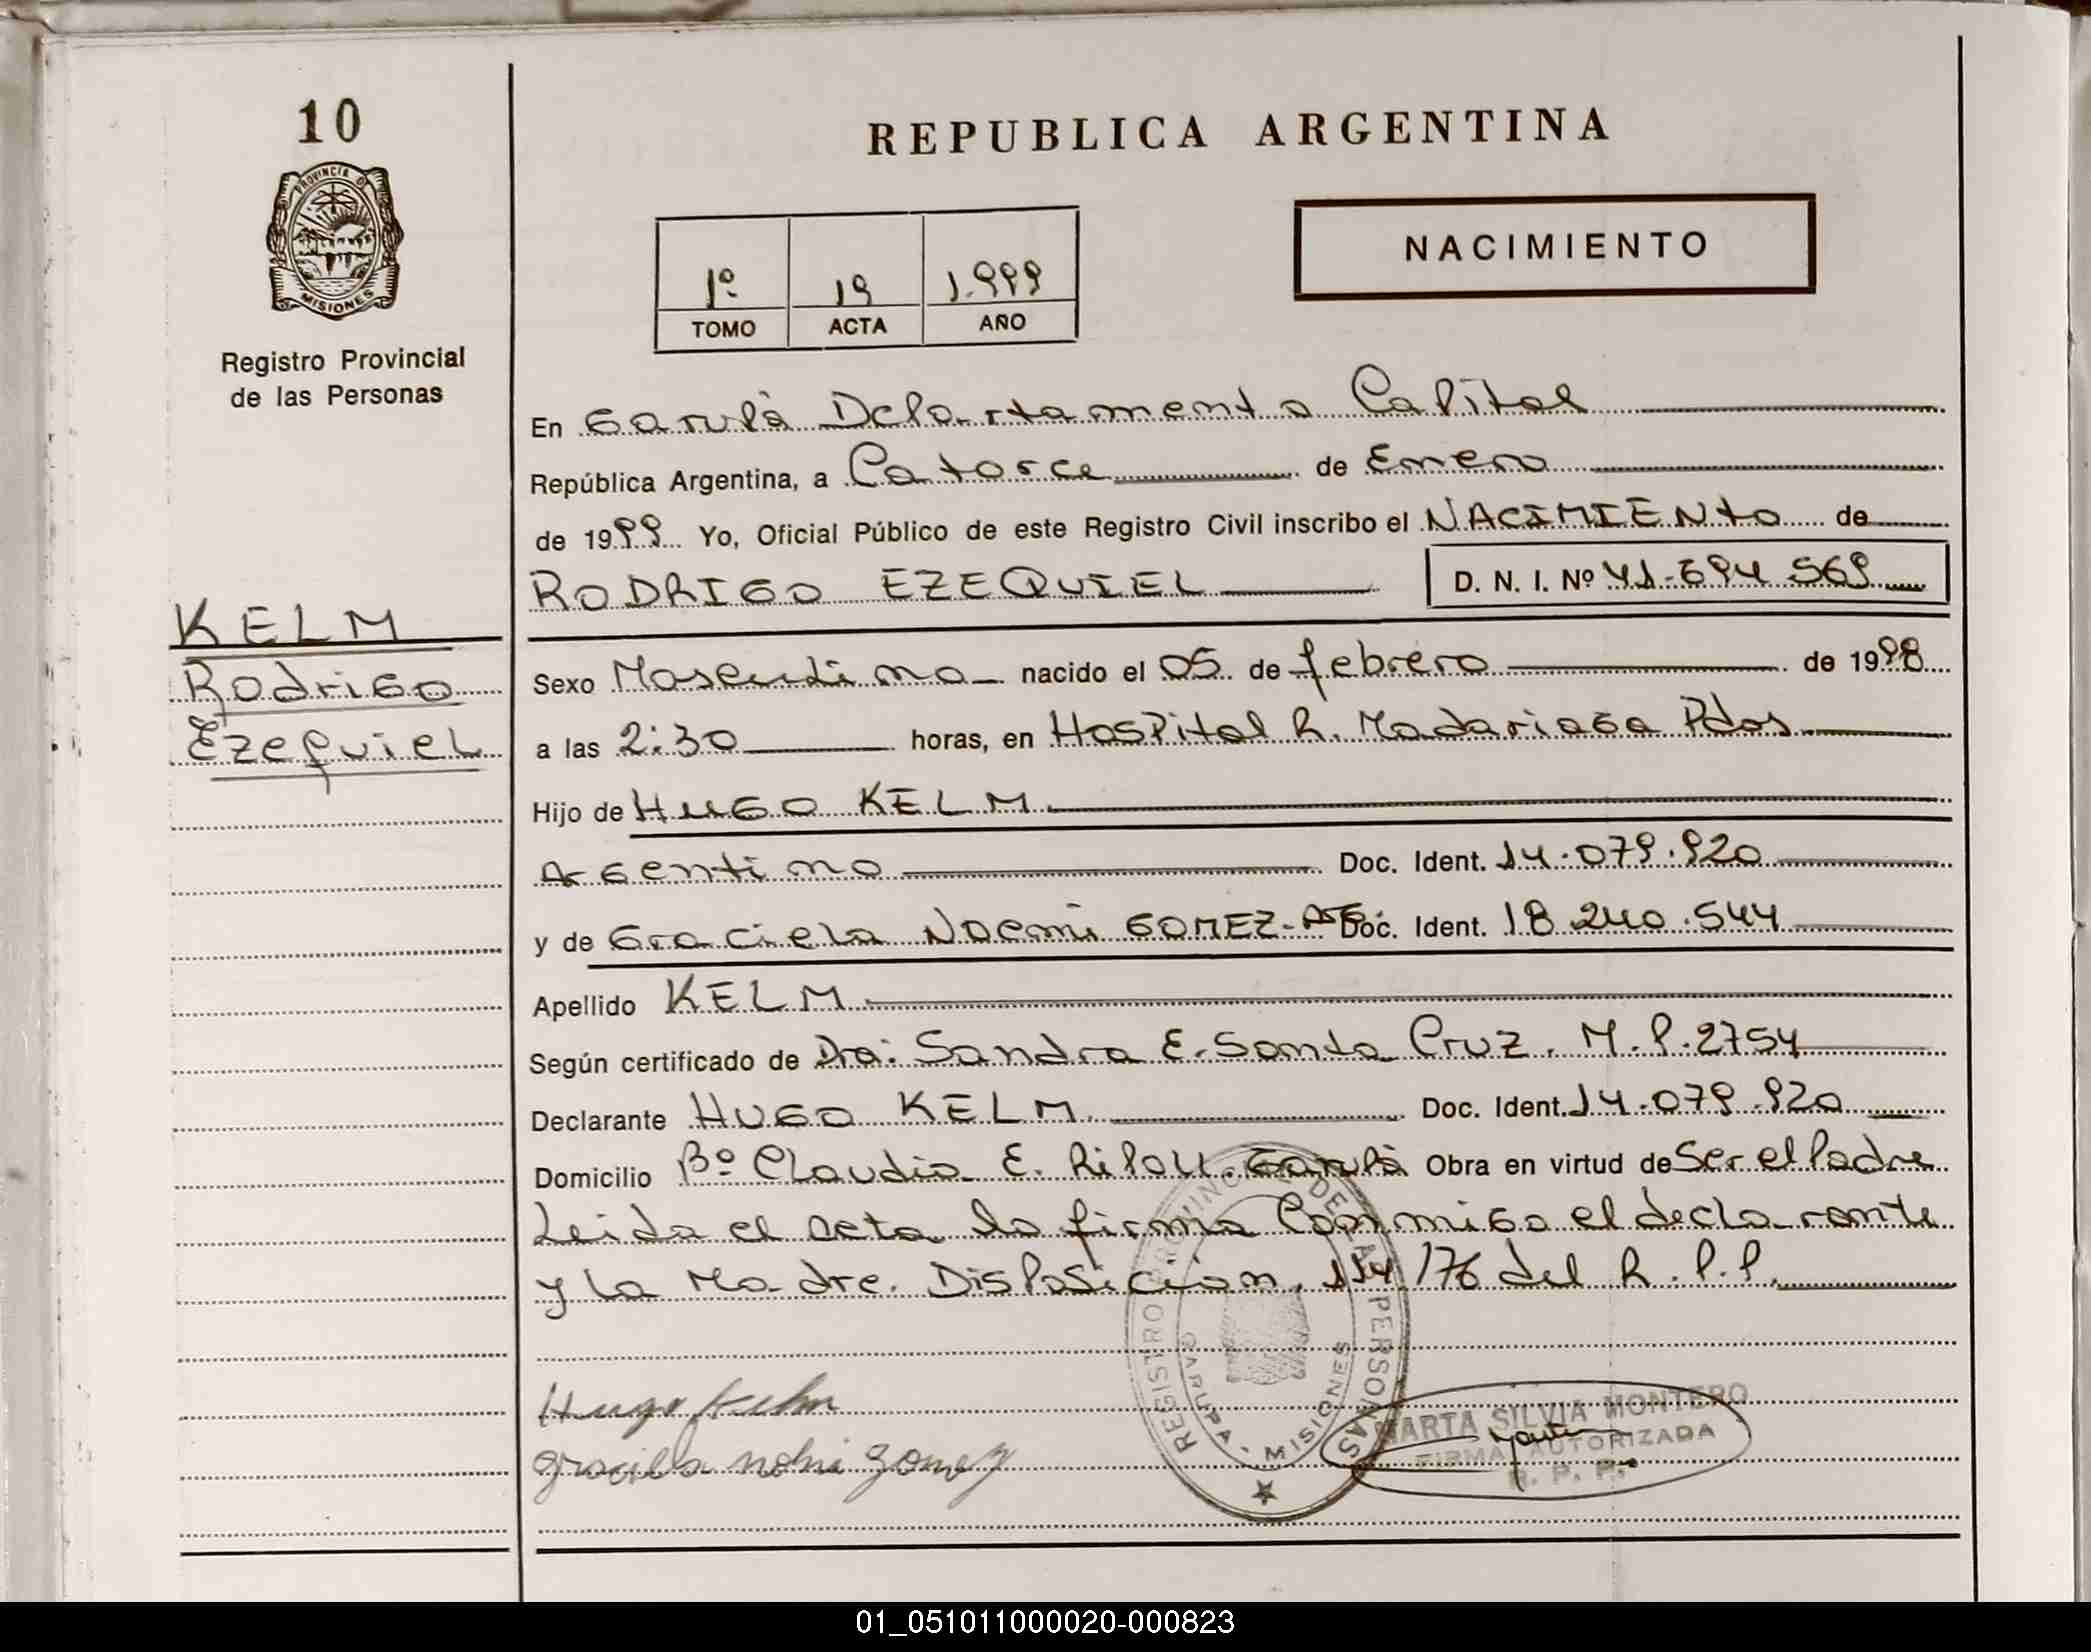 10
PROVINCIA DE
MISIONES
Registro Provincial
de las Personas
REPUBLICA ARGENTINA
NACIMIENTO
1º 19 1.999
TOMO ACTA AÑO
En Garupá Departamento Capital
República Argentina, a Catorce de Enero
de 1999 Yo, Oficial Público de este Registro Civil inscribo el NACIMIENTO de
RODRIGO EZEQUIEL D. N. I. Nº 41.694 569
KELM
Rodrigo
Ezequiel
Sexo Masculino nacido el 05 de febrero de 1998
a las 2:30 horas, en Hospital R. Madariaga Pdas
Hijo de HUGO KELM
Argentino Doc. Ident. 14.079.920
y de Graciela Noemi GOMEZ-ARG. Doc. Ident. 18 240.544
Apellido KELM
Según certificado de Dra. Sandra E. Santa Cruz. M.P. 2754
Declarante HUGO KELM Doc. Ident. 14.079.920
Domicilio Bº Claudia E. Ripoll-Garupá Obra en virtud de Ser el Padre
Leida el acta la firma Conmigo el declarante
y la Madre. Disposicion. 114/76 del R.P.P.
Hugo Kelm
graciela nohmi gomez
REGISTRO PROVINCIAL DE LAS PERSONAS
GARUPA - MISIONES
MARTA SILVIA MONTERO
FIRMA AUTORIZADA
R. P. P.
01_051011000020-000823